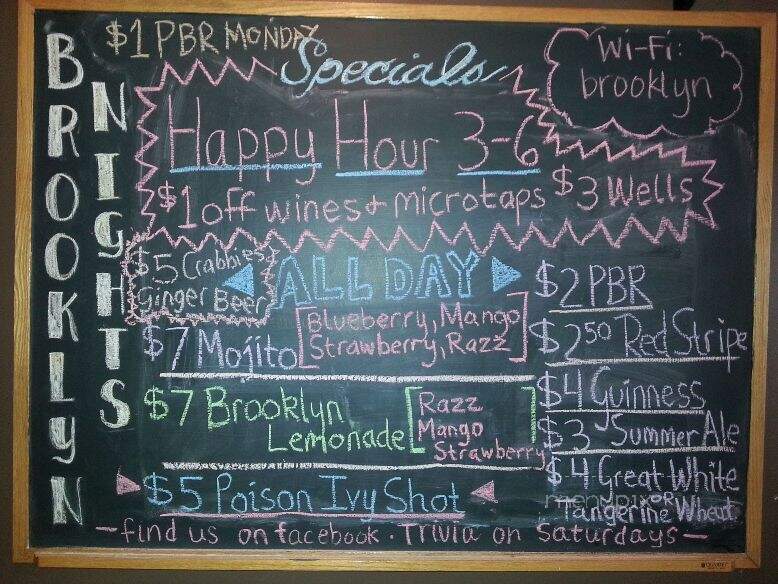 BROOKLYN
NIGHTS
$1 PBR MONDAY
Specials
Wi-Fi:
brooklyn
Happy Hour 3-6
$1 off wines + microtaps
$3 Wells
$5 Crabbies
Ginger Beer
ALL DAY
$7 Mojito
Blueberry, Mango
Strawberry, Razz
$7 Brooklyn
Lemonade
Razz
Mango
Strawberry
$5 Poison Ivy Shot
$2 PBR
$2 50 Red Stripe
$4 Guinness
$3 Summer Ale
$4 Great White
OR
Tangerine Wheat
menupix
-find us on facebook · Trivia on Saturdays-